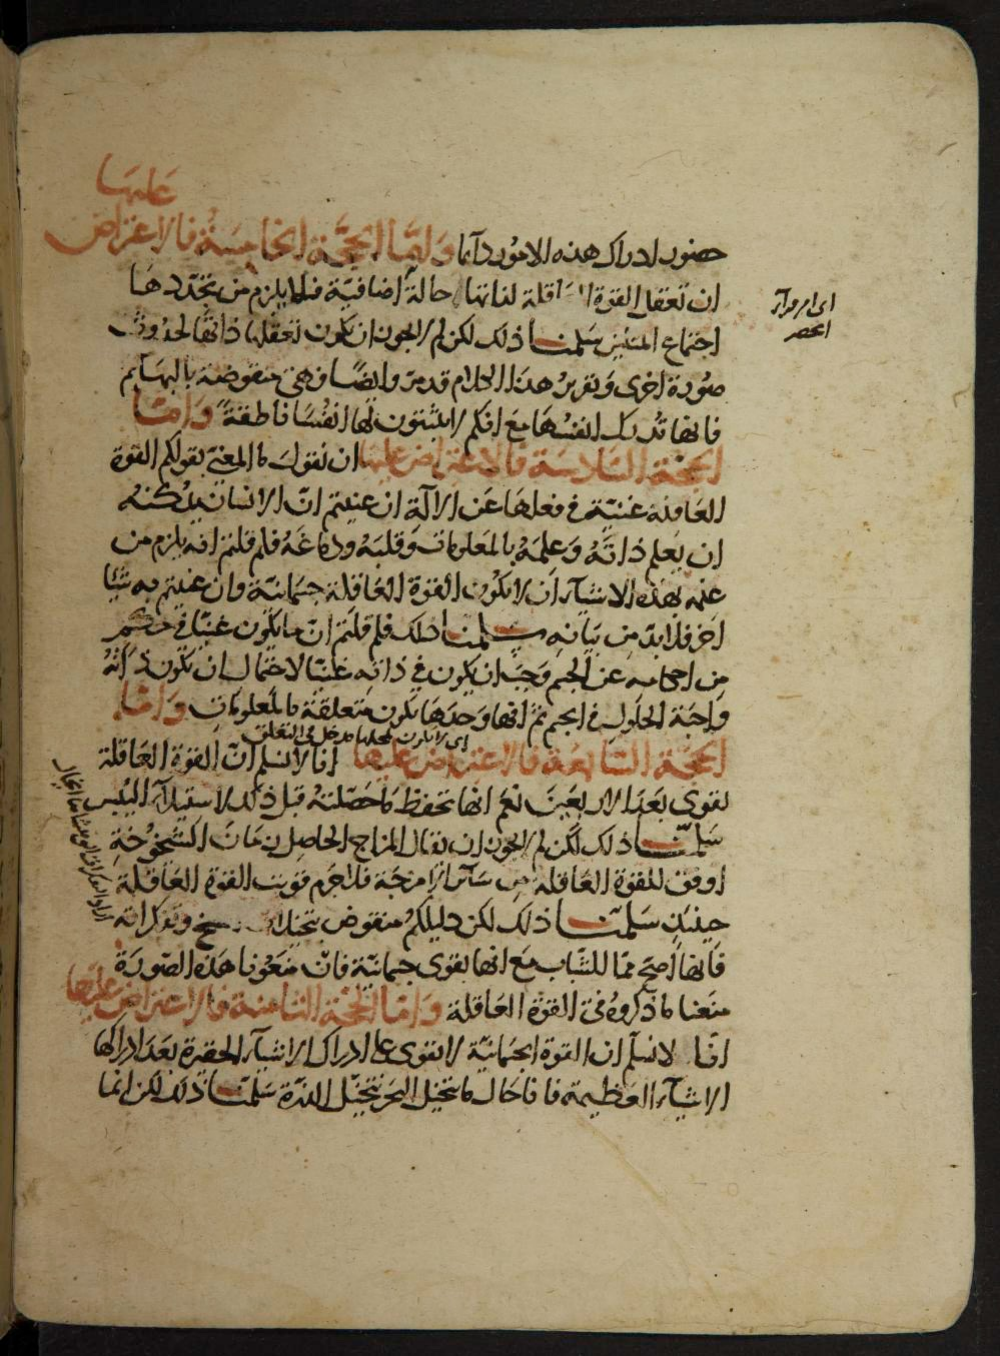 عليها
حضور ادراك هذه الامور دآئما وامّا الحجّة الخامسة فالاعتراض
ان تعقل القوة العاقلة لذاتها حالة اضافية فلا يلزم من تجدّدها
اجتماع المثلين سلّمنا ذلك لكن لم لا يجوز ان يكون تعقلها ذاتها لحدوث
صورة اخرى وتقرير هذا الكلام قد مرّ وايضًا فهي منقوضة بالبهائم
فانها تدرك انفسها مع انكم لا تثبتون لها انفسًا ناطقةً وامّا
الحجّة السادسة فالاعتراض عليها ان نقول ما المعني بقولكم القوة
العاقلة غنيّة في فعلها عن الآلة ان عنيتم انّ الانسان يمكنه
ان يعلم ذاته وعلمه بالمعلومات وقلبه ودماغه فلم قلتم انه يلزم من
علمه بهذه الاشيآء ان لا تكون القوة العاقلة جسمانيّة وان عنيتم به شيئا
آخر فلا بدّ من بيانه سلّمنا ذلك فلم قلتم انّ ما يكون غنيّا في حكم
من احكامه عن الجسم وجب ان يكون في ذاته غنيّا لاحتمال ان يكون ذاته
واجبة الحلول في الجسم ثمّ انها وحدها يكون متعلقة بالمعلومات وامّا
اى لا يكون لمحلها مدخل فى التعلق
الحجّة السابعة فالاعتراض عليها انا لا نسلّم انّ القوة العاقلة
تقوى بعد الاربعين نعم انها تحفظ ما حصّلته قبل ذلك لاستيلآء اليبس
سلّمنا ذلك لكن لم لا يجوز ان يقال المزاج الحاصل زمان الشيخوخة
اوفق للقوة العاقلة من سآئر الامزجة فلا جرم قويت القوة العاقلة
حينئذ سلّمنا ذلك لكن دليلكم منقوض بتخيل الشيخ وتفكراته
فانها اصحّ ممّا للشباب مع انها بقوى جسمانيّة فان منعونا هذه الصورة
منعنا ما ذكروه في القوة العاقلة وامّا الحجّة الثامنة فالاعتراض عليها
انّا لا نسلّم ان القوة الجسمانيّة لا تقوى على ادراك الاشيآء الحقيرة بعد ادراكها
الاشيآء العظيمة فانا حال ما نتخيل البحر نتخيّل الذرّة سلّمنا ذلك لكن انما